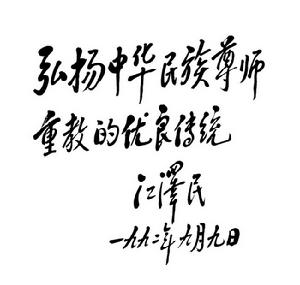 弘扬中华民族尊师
重教的优良传统
江泽民
一九九二年九月九日